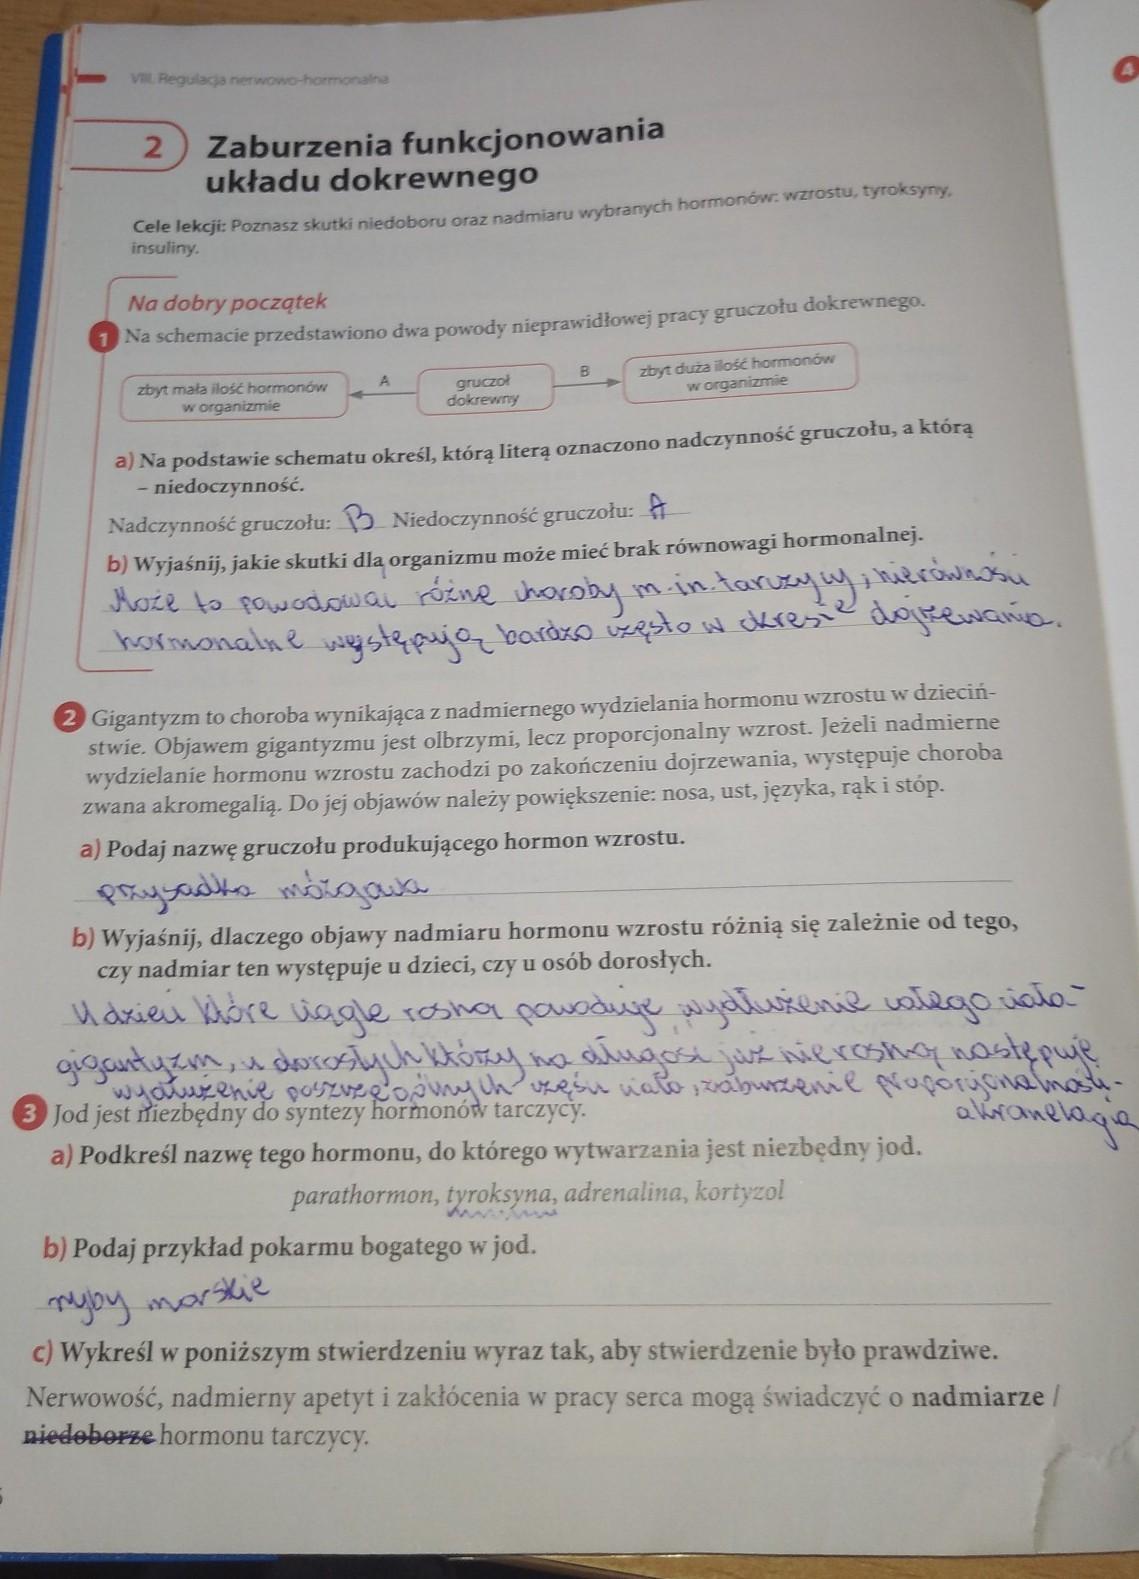 VIII. Regulacja nerwowo-hormonalna
4
2
Zaburzenia funkcjonowania
układu dokrewnego
Cele lekcji: Poznasz skutki niedoboru oraz nadmiaru wybranych hormonów: wzrostu, tyroksyny,
insuliny.
Na dobry początek
1 Na schemacie przedstawiono dwa powody nieprawidłowej pracy gruczołu dokrewnego.
zbyt mała ilość hormonów
w organizmie
A
gruczoł
dokrewny
B
zbyt duża ilość hormonów
w organizmie
a) Na podstawie schematu określ, którą literą oznaczono nadczynność gruczołu, a którą
– niedoczynność.
Nadczynność gruczołu: B Niedoczynność gruczołu: A
b) Wyjaśnij, jakie skutki dla organizmu może mieć brak równowagi hormonalnej.
Może to powodować różne choroby m.in. tarczycy, nierówności
hormonalne występują bardzo często w okresie dojrzewania.
2 Gigantyzm to choroba wynikająca z nadmiernego wydzielania hormonu wzrostu w dzieciń-
stwie. Objawem gigantyzmu jest olbrzymi, lecz proporcjonalny wzrost. Jeżeli nadmierne
wydzielanie hormonu wzrostu zachodzi po zakończeniu dojrzewania, występuje choroba
zwana akromegalią. Do jej objawów należy powiększenie: nosa, ust, języka, rąk i stóp.
a) Podaj nazwę gruczołu produkującego hormon wzrostu.
przysadka mózgowa
b) Wyjaśnij, dlaczego objawy nadmiaru hormonu wzrostu różnią się zależnie od tego,
czy nadmiar ten występuje u dzieci, czy u osób dorosłych.
U dzieci które ciągle rosną powoduje wydłużenie całego ciała -
gigantyzm, u dorosłych którzy na długość już nie rosną następuje
wydłużenie poszczególnych części ciała, zaburzenie proporcjonalności -
akromelagia
3 Jod jest niezbędny do syntezy hormonów tarczycy.
a) Podkreśl nazwę tego hormonu, do którego wytwarzania jest niezbędny jod.
parathormon, tyroksyna, adrenalina, kortyzol
b) Podaj przykład pokarmu bogatego w jod.
ryby morskie
c) Wykreśl w poniższym stwierdzeniu wyraz tak, aby stwierdzenie było prawdziwe.
Nerwowość, nadmierny apetyt i zakłócenia w pracy serca mogą świadczyć o nadmiarze /
niedoborze hormonu tarczycy.